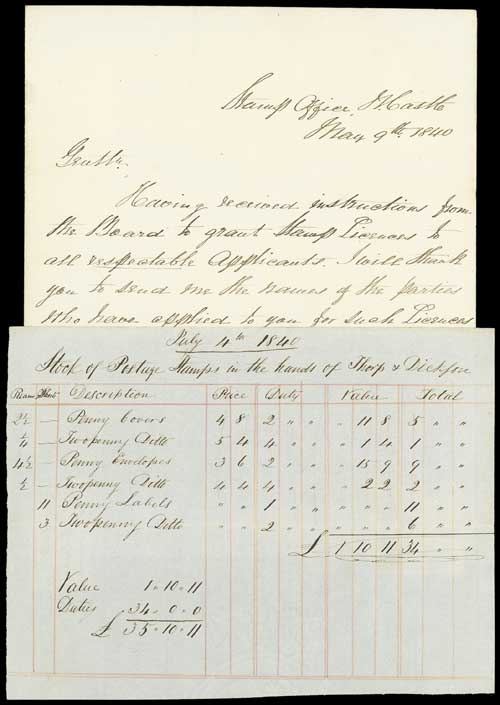 Stamp Office, N.Castle
May 9th 1840
Gentln.
Having received instructions from
the Board to grant Stamp Licences to
all respectable Applicants. I will thank
you to send me the names of the parties
who have applied to you for such Licences
July 4th 1840
Stock of Postage Stamps in the hands of Thorp & Dickson
Ream Sheets Description Price Duty Value Total
2½ — Penny Covers 4 8 2 " " " 11 8 5 " "
¼ — Twopenny Ditto 5 4 4 " " " 1 4 1 " "
4½ — Penny Envelopes 3 6 2 " " " 15 9 9 " "
½ — Twopenny Ditto 4 4 4 " " " 2 2 2 " "
11 Penny Labels " " 1 " " " " " 11 " "
3 Twopenny Ditto " " 2 " " " " " 6 " "
£ 1 10 11 34 " "
Value 1 - 10 - 11
Duties 34 - 0 - 0
£ 35 - 10 - 11